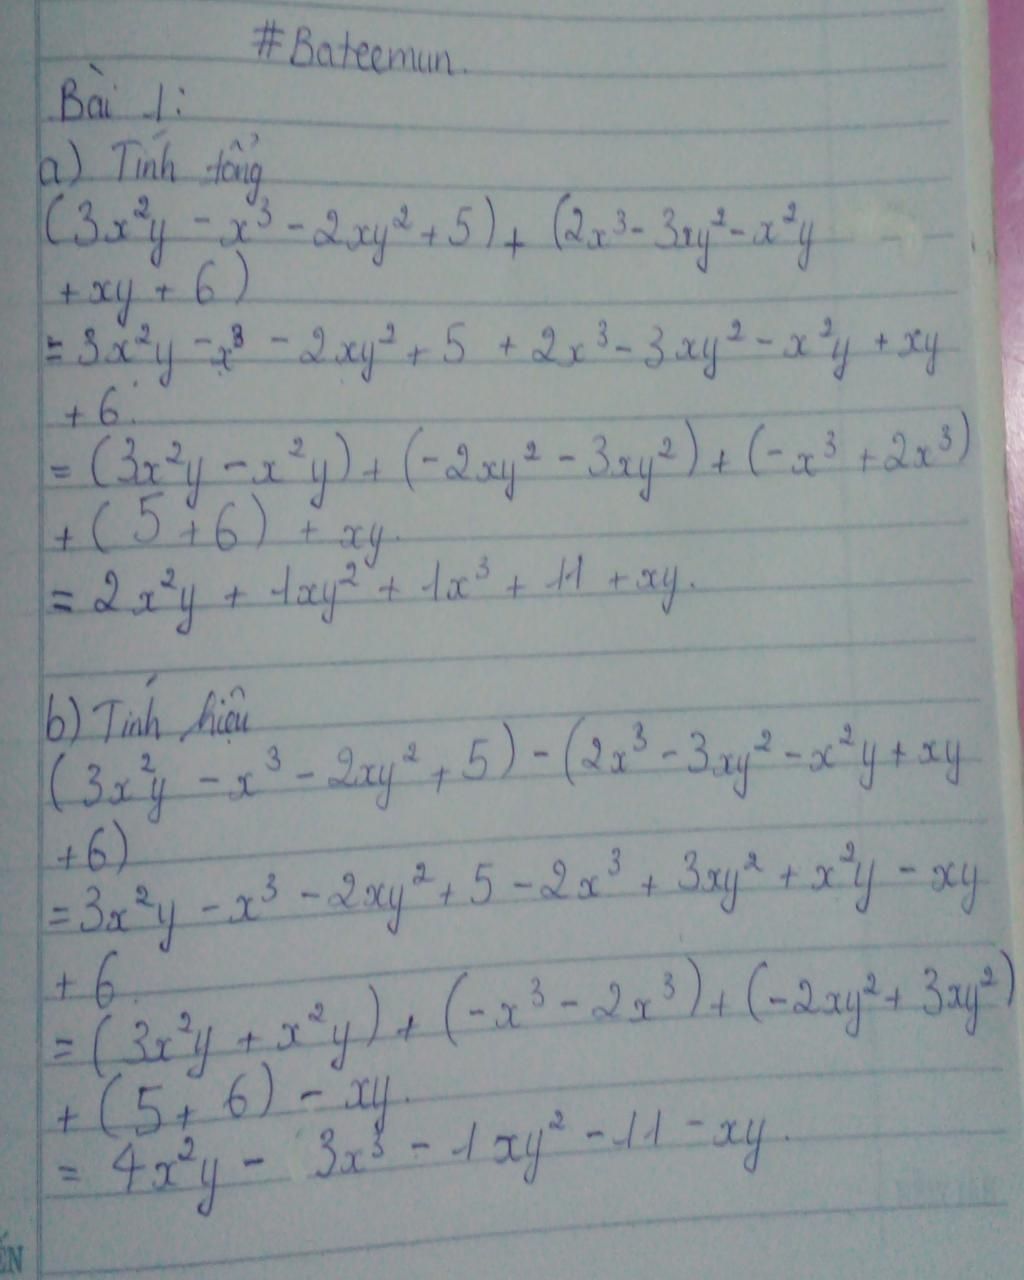 #Bateemun.
Bài 1:
a) Tính tổng
(3x²y - x³ - 2xy² + 5) + (2x³ - 3xy² - x²y
+ xy + 6)
= 3x²y - x³ - 2xy² + 5 + 2x³ - 3xy² - x²y + xy
+ 6.
= (3x²y - x²y) + (-2xy² - 3xy²) + (-x³ + 2x³)
+ (5 + 6) + xy.
= 2x²y + 1xy² + 1x³ + 11 + xy.
b) Tính hiệu
(3x²y - x³ - 2xy² + 5) - (2x³ - 3xy² - x²y + xy
+ 6)
= 3x²y - x³ - 2xy² + 5 - 2x³ + 3xy² + x²y - xy
+ 6.
= (3x²y + x²y) + (-x³ - 2x³) + (-2xy² + 3xy²)
+ (5 + 6) - xy.
= 4x²y - 3x³ - 1xy² - 11 - xy.